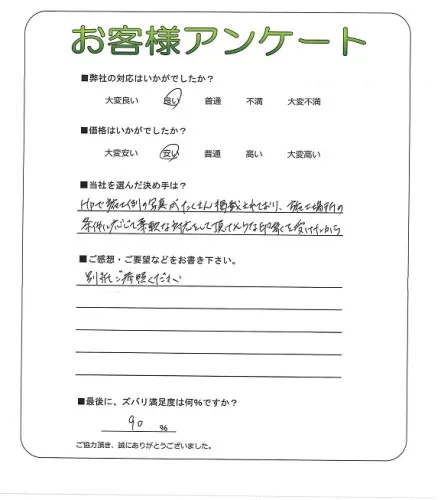 お客様アンケート
■弊社の対応はいかがでしたか?
大変良い 良い 普通 不満 大変不満
■価格はいかがでしたか?
大変安い 安い 普通 高い 大変高い
■当社を選んだ決め手は?
HPで施工例の写真がたくさん掲載されており、施工場所の
条件に応じて柔軟な対応をして頂けそうな印象を受けたから
■ご感想・ご要望などをお書き下さい。
別紙ご参照ください
■最後に、ズバリ満足度は何%ですか?
90 %
ご協力頂き、誠にありがとうございました。